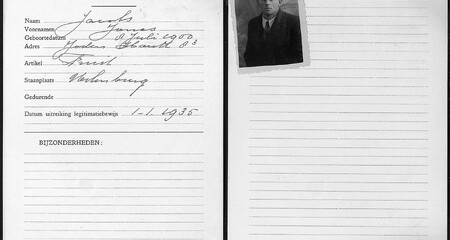 Naam Jacobs
Voornamen Jonas
Geboortedatum 8 Juli 1900
Adres
Artikel Fruit
Standplaats
Gedurende
Datum uitreiking legitimatiebewijs 1-1-1935
BIJZONDERHEDEN: